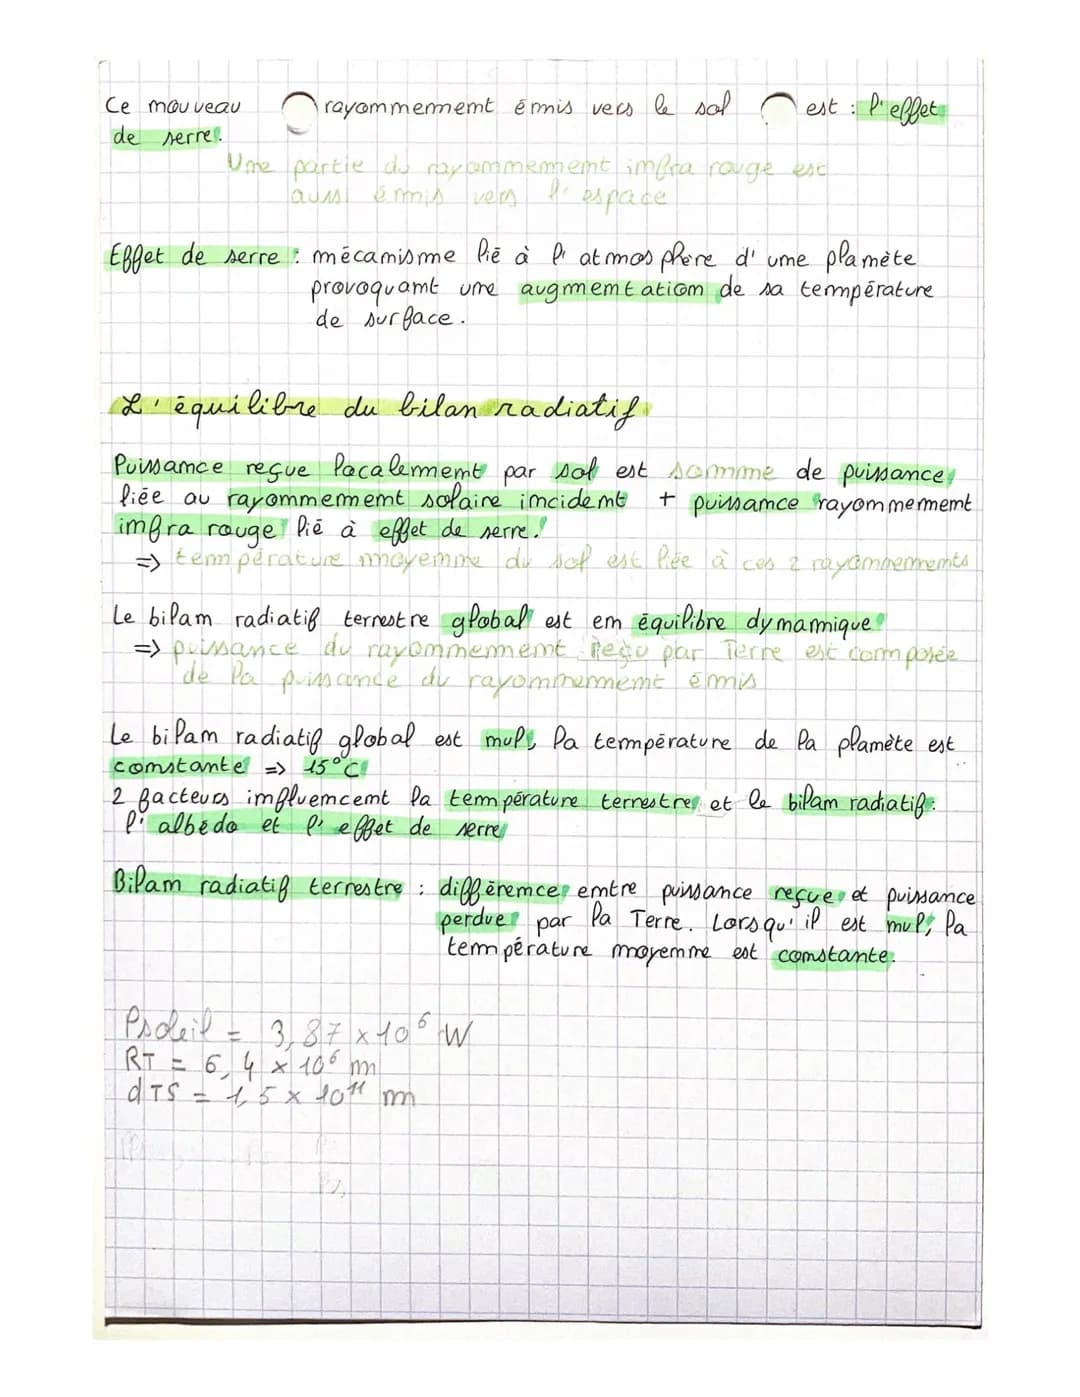 Ce nouveau rayonnement émis vers le sol est : l'effet
de serre.
Une partie du rayonnement infra rouge est
aussi émis vers l'espace
Effet de serre : mécanisme lié à l'atmosphère d'une planète
provoquant une augmentation de sa température
de surface.
L'équilibre du bilan radiatif
Puissance reçue localement par sol est somme de puissance
liée au rayonnement solaire incident + puissance rayonnement
infra rouge lié à effet de serre.
=> température moyenne du sol est liée à ces 2 rayonnements
Le bilan radiatif terrestre global est en équilibre dynamique
=> puissance du rayonnement reçu par Terre est composée
de la puissance du rayonnement émis
Le bilan radiatif global est nul, la température de la planète est
constante => 15°C
2 facteurs influencent la température terrestre et le bilan radiatif :
l'albédo et l'effet de serre
Bilan radiatif terrestre : différence entre puissance reçue et puissance
perdue par la Terre. Lorsqu'il est nul, la
température moyenne est constante.
Psoleil = 3,87 x 10⁶ W
RT = 6,4 x 10⁶ m
dTS = 1,5 x 10¹¹ m